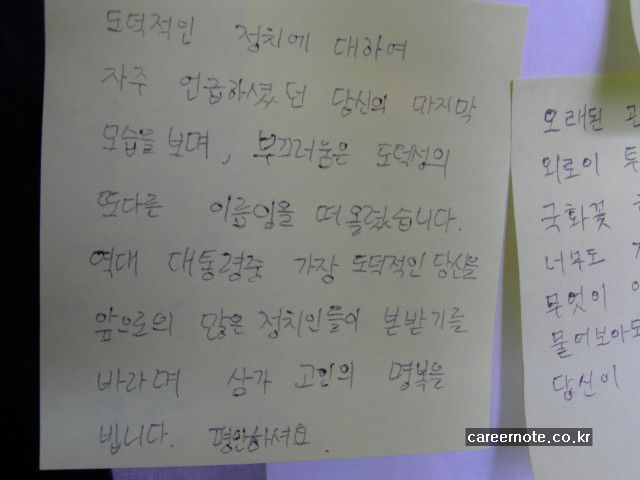 도덕적인 정치에 대하여
자주 언급하셨던 당신의 마지막
모습을 보며, 부끄러움은 도덕성의
또다른 이름임을 떠올렸습니다.
역대 대통령중 가장 도덕적인 당신을
앞으로의 많은 정치인들이 본받기를
바라며 삼가 고인의 명복을
빕니다. 평안하셔요.
오래된
외로이
국화꽃
너무도
무엇이
물어보아도
당신이
careernote.co.kr